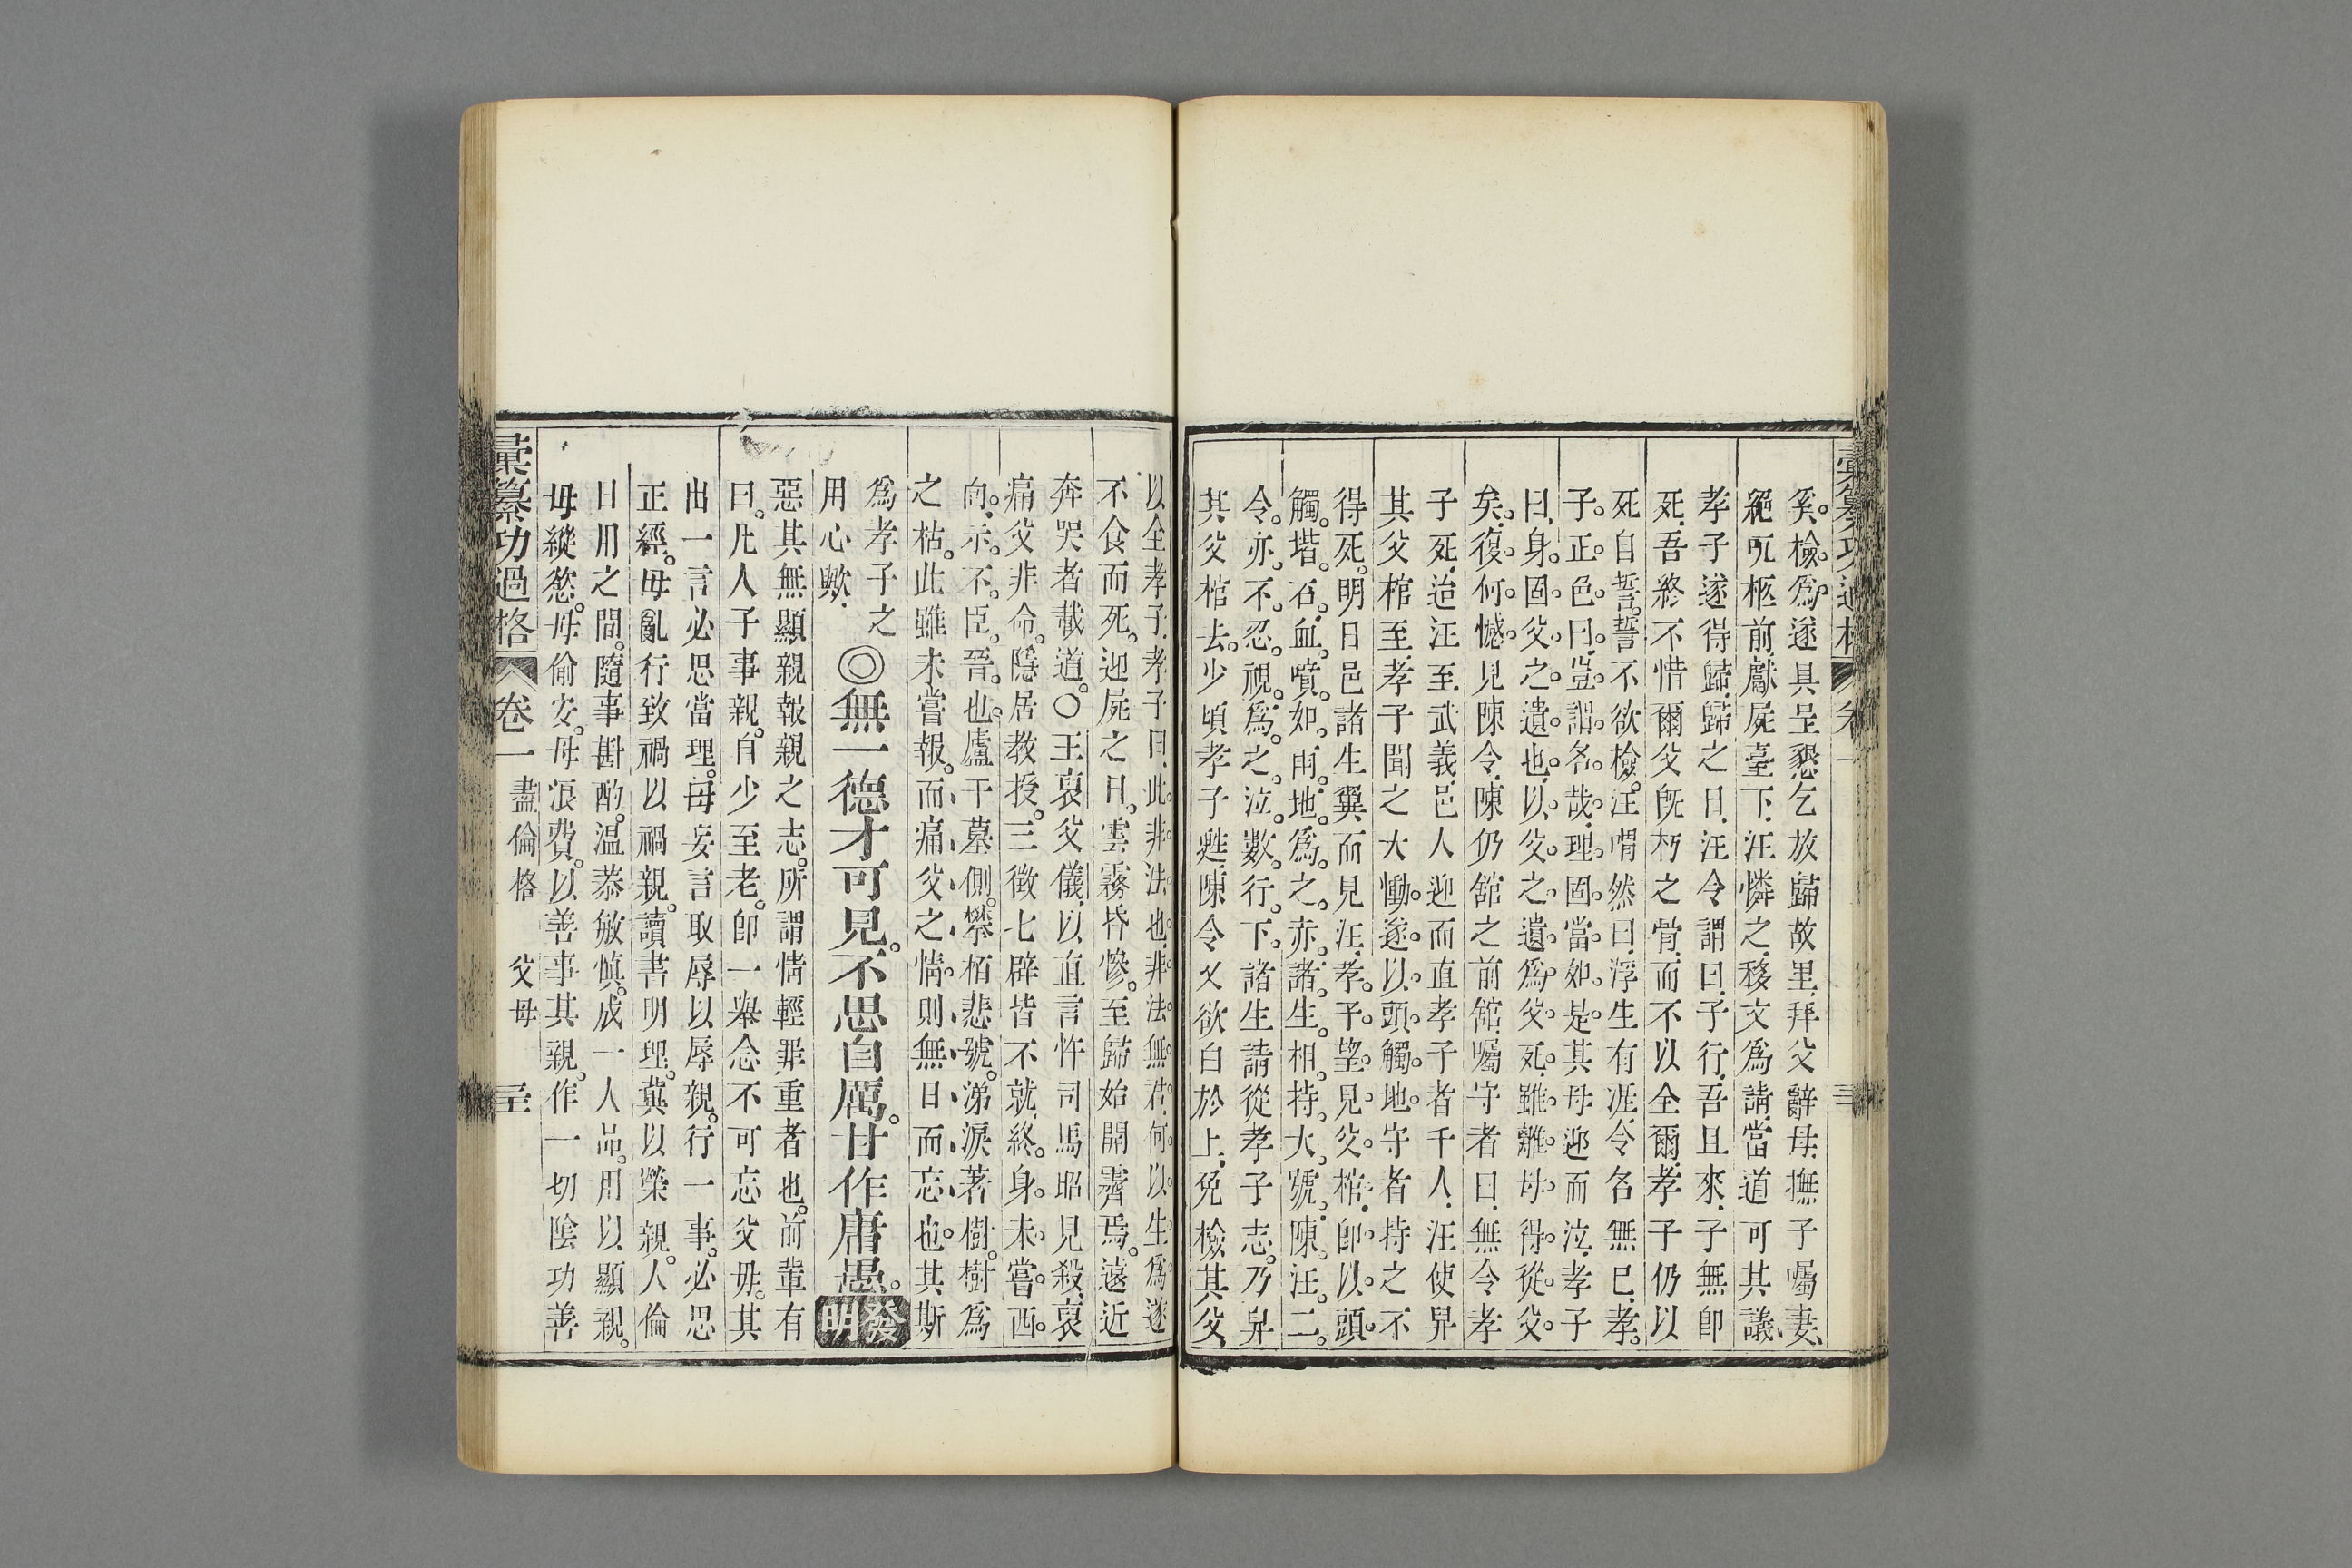 奚檢爲遂具呈懇乞放歸故里拜父辭母撫子囑妻
絕吭柩前獻屍臺下汪憐之移文爲請當道可其議
孝子遂得歸歸之日汪令謂曰子行吾且來子無卽
死吾終不惜爾父旣朽之骨而不以全爾孝子仍以
死自誓誓不欲檢汪喟然曰浮生有涯令名無已孝
子正色曰豈謂名哉理固當如是其母迎而泣孝子
曰身固父之遺也以父之遺爲父死雖離母得從父
矣復何憾見陳令陳仍舘之前舘囑守者曰無令孝
子死迨汪至武義邑人迎而直孝子者千人汪使舁
其父棺至孝子聞之大慟遂以頭觸地守者持之不
得死明日邑諸生翼而見汪孝子望見父棺卽以頭
觸堦石血噴如雨地爲之赤諸生相持大號陳汪二
令亦不忍視爲之泣數行下諸生請從孝子志乃舁
其父棺去少頃孝子甦陳令又欲白於上免檢其父
以全孝子孝子曰此非法也非法無君何以生爲遂
不食而死迎屍之日雲霧昏慘至歸始開霽焉遠近
奔哭者載道○王裒父儀以直言忤司馬昭見殺裒
痛父非命隱居教授三徵七辟皆不就終身未嘗西
向示不臣晉也廬于墓側攀栢悲號涕淚著樹樹爲
之枯此雖未嘗報而痛父之情則無日而忘也其斯
爲孝子之
用心歟
◎無一德才可見不思自厲甘作庸愚
發明
惡其無顯親報親之志所謂情輕罪重者也前輩有
曰凡人子事親自少至老卽一舉念不可忘父母其
出一言必思當理毋妄言取辱以辱親行一事必思
正經毋亂行致禍以禍親讀書明理冀以榮親人倫
日用之間隨事斟酌溫恭敏慎成一人品用以顯親
毋縱慾毋偷安毋浪費以善事其親作一切陰功善
彙纂功過格 卷一 盡倫格 父母